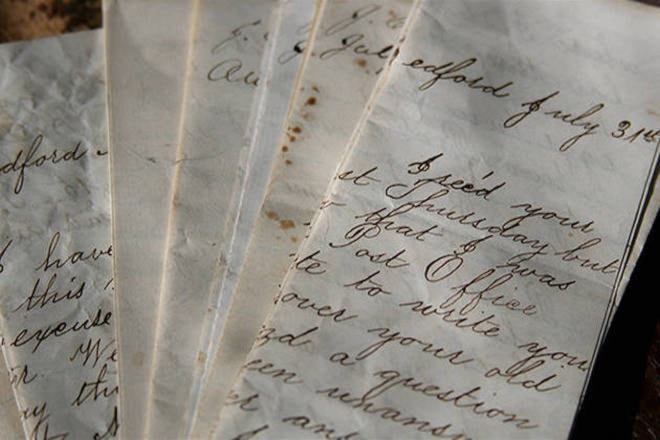 dford
I have
this
excuse
We
J.
Au
J. Jul
edford July 31st
I rec'd your
st Thursday but
that I was
Post Office
te to write you
over your old
a question
een unansw